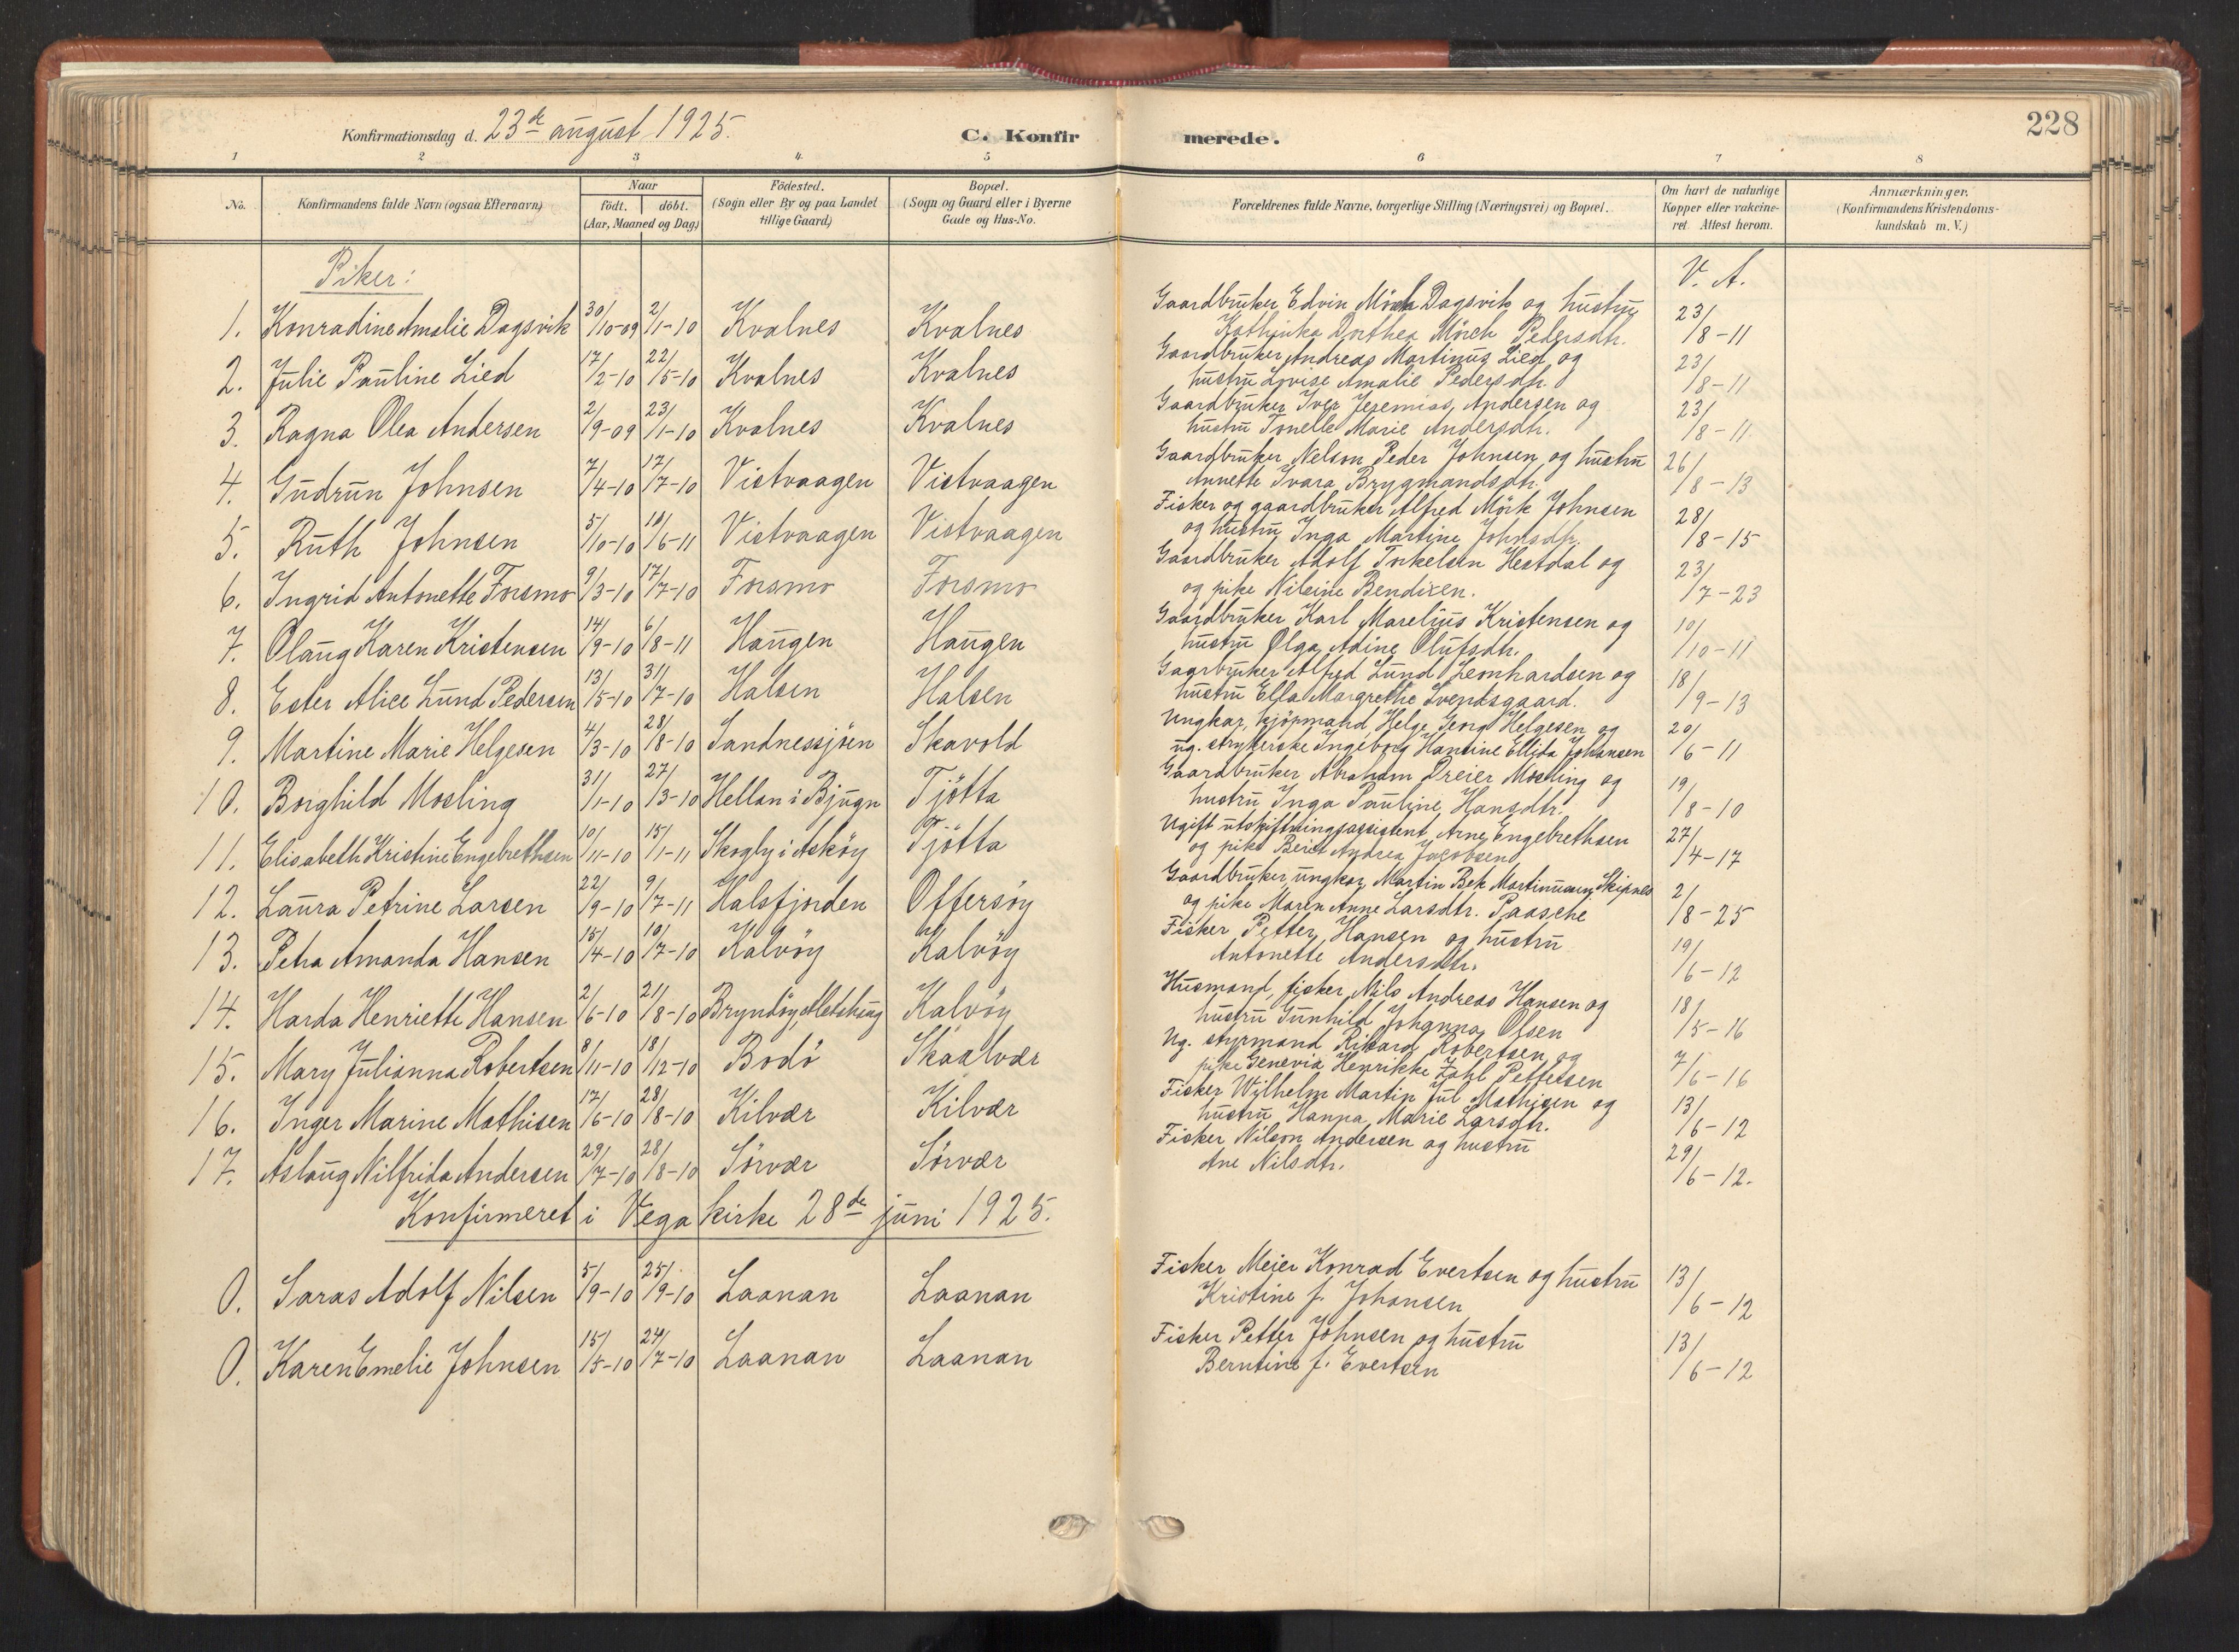 Konfirmationsdag d. 23de august 1925. C. Konfirmerede. 228
1 2 3 4 5 6 7 8
No. Konfirmandens fulde Navn (ogsaa Efternavn) Naar födt. döbt. (Aar, Maaned og Dag) Födested. (Sogn eller By og paa Landet tillige Gaard) Bopæl. (Sogn og Gaard eller i Byerne Gade og Hus-No. Forældrenes fulde Navne, borgerlige Stilling (Næringsvei) og Bopæl. Om havt de naturlige Kopper eller vakcineret. Attest herom. Anmærkninger. (Konfirmandens Kristendomskundskab m. V.)
Piker: V. A.
1. Konradine Amalie Dagsvik 30/10-09 2/1-10 Kvalnes Kvalnes Gaardbruker Edvin Mörch Dagsvik og hustru 23/8-11
Kathinka Dorthea Mörch Pedersdtr.
2. Julie Pauline Lied 17/2-10 22/5-10 Kvalnes Kvalnes Gaardbruker Andreas Martinus Lied og 23/8-11
hustru Lovise Amalie Pedersdtr.
3. Ragna Olea Andersen 2/9-09 23/1-10 Kvalnes Kvalnes Gaardbruker Iver Jeremias Andersen og 23/8-11.
hustru Tonelle Marie Andersdtr.
4. Gudrun Johnsen 7/4-10 17/7-10 Vistvaagen Vistvaagen Gaardbruker Nelson Peder Johnsen og hustru 26/8-13
Annette Ivara Brygmandsdtr.
5. Ruth Johnsen 5/10-10 /6-11 Vistvaagen Vistvaagen Fisker og gaardbruker Alfred Mörk Johnsen 28/8-15
og hustru Inga Martine Johnsdtr.
6. Ingrid Antonette Forsmo 9/3-10 17/7-10 Forsmo Forsmo Gaardbruker Adolf Torkelsen Hestdal og 23/7-23
og pike Nileine Bendixen.
7. Olaug Karen Kristensen 14/9-10 6/8-11 Haugen Haugen Gaardbruker Karl Marelius Kristensen og 10/10-11
hustru Olga Adine Olufsdtr.
8. Ester Alice Lund Pedersen 13/5-10 31/7-10 Halsen Halsen Gaarbruker Alfred Lund Leonhardsen og 18/9-13
hustru Ella Margrethe Svendsgaard.
9. Martine Marie Helgesen 4/3-10 28/8-10 Sandnessjöen Skavold Ungkar, kjöpmand, Helge Georg Helgesen og 20/6-11
ug. strykerske Ingeborg Hansine Ellida Johansen
10. Borghild Mosling 31/1-10 27/3-10 Hellan i Bjugn Tjötta Gaardbruker Abraham Dreier Mosling og 19/8-10
hustru Inga Pauline Hansdtr.
11. Elisabeth Kristine Engebrethsen 10/11-10 15/1-11 Skogly i Asköy Tjötta Ugift utskiftningsassistent Arne Engebrethsen 27/4-17
og pike Beret Andrea Jacobsen
12. Laura Petrine Larsen 22/9-10 9/7-11 Halsfjorden Offersöy Gaardbruker, ungkar, Martin Bek Martinussen Skipnes 2/8-25
og pike Maren Anne Larsdtr. Paasche
13. Petra Amanda Hansen 15/4-10 10/7-10 Kalvöy Kalvöy Fisker Petter Hansen og hustru 19/6-12
Antonette Andersdtr.
14. Harda Henriette Hansen 2/6-10 21/8-10 Bryndöy, Kalvöy Husmand, fisker Nils Andreas Hansen og 18/5-16
hustru Gunhild Johanna Olsen
15. Mary Julianna Robertsen 8/11-10 18/12-10 Bodö Skaalvær Ug. styrmand Rikard Robertsen og 7/6-16
pike Genevia Henrikke Zahl Pettersen
16. Inger Marine Mathisen 17/6-10 28/8-10 Kilvær Kilvær Fisker Wilhelm Martin Jul Mathisen og 13/6-12
hustru Hanna Marie Larsdtr.
17. Aslaug Nilfrida Andersen 29/7-10 28/8-10 Sörvær Sörvær Fisker Nilson Andersen og hustru 29/6-12.
Ane Nilsdtr.
Konfirmeret i Vega kirke 28de juni 1925.
0. Saras Adolf Nilsen 5/9-10 25/9-10 Laanan Laanan Fisker Meier Konrad Evertsen og hustru 13/6-12
Kristine f. Johansen
0. Karen Emelie Johnsen 15/5-10 24/7-10 Laanan Laanan Fisker Petter Johnsen og hustru 13/6-12
Berntine f. Evertsen